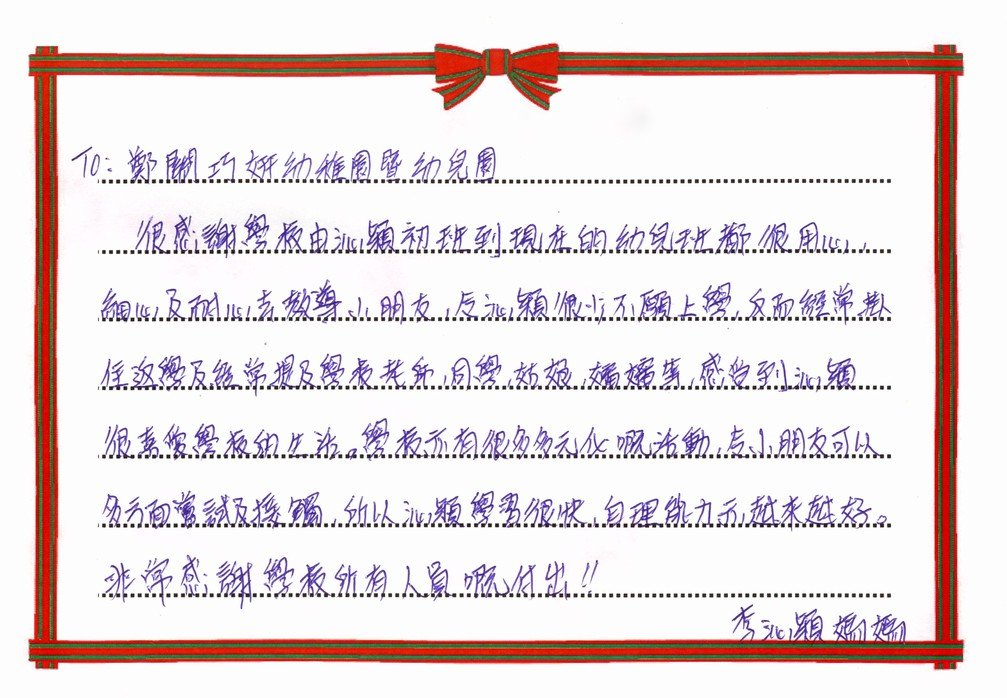 To: 鄭關巧妍幼稚園暨幼兒園
很感謝學校由沁穎初班到現在的幼兒班都很用心、
細心及耐心去教導小朋友,令沁穎很少不願上學,反而經常掛
住返學及經常提及學校老師,同學,姑娘,嬸嬸等,感受到沁穎
很喜愛學校的生活。學校亦有很多多元化嘅活動,令小朋友可以
多方面嘗試及接觸,所以沁穎學習很快,自理能力亦越來越好。
非常感謝學校所有人員嘅付出!!
李沁穎媽媽